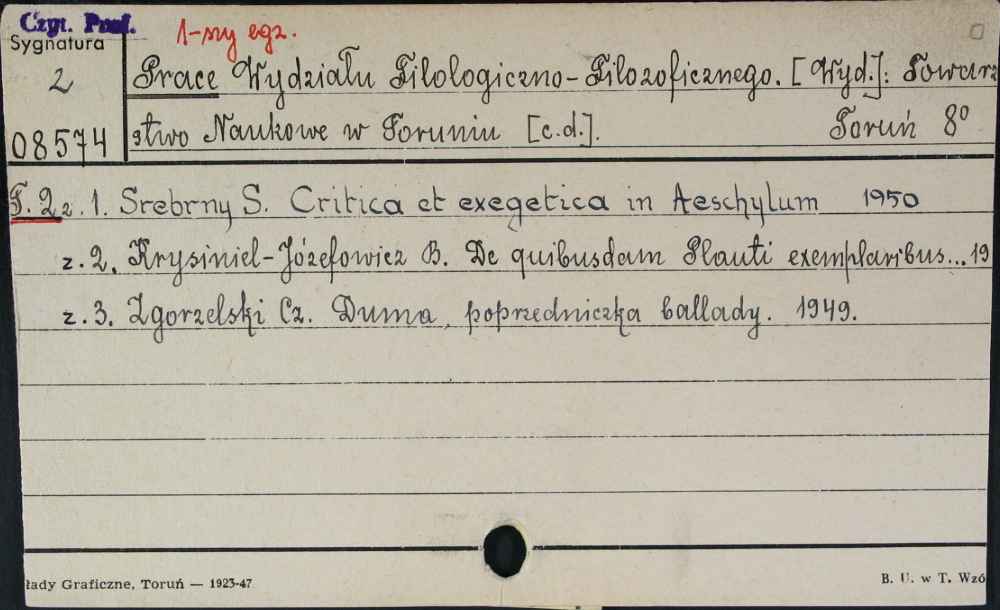 Czyt. Prof.
1-szy egz.
Sygnatura
2
08574
Prace Wydziału Filologiczno-Filozoficznego. [Wyd.]: Towarz
stwo Naukowe w Toruniu [c.d.]. Toruń 8⁰
T. 2 z. 1. Srebrny S. Critica et exegetica in Aeschylum 1950
z. 2. Krysiniel-Józefowicz B. De quibusdam Plauti exemplaribus... 19
z. 3. Zgorzelski Cz. Duma, poprzedniczka ballady. 1949.
łady Graficzne, Toruń — 1923-47
B. U. w T. Wzó